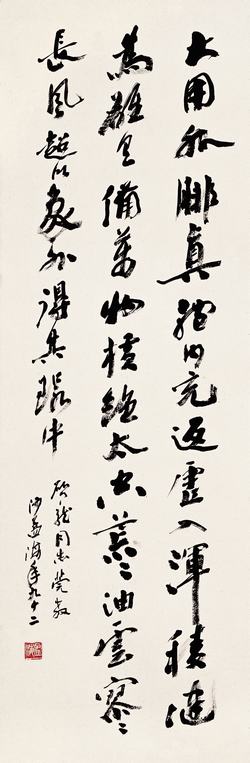 大用外腓真體內充返虛入渾積健
為雄具備萬物橫絕太空荒〻油雲寥〻
長風超以象外得其環中
同志莞教
沙孟海年九十二